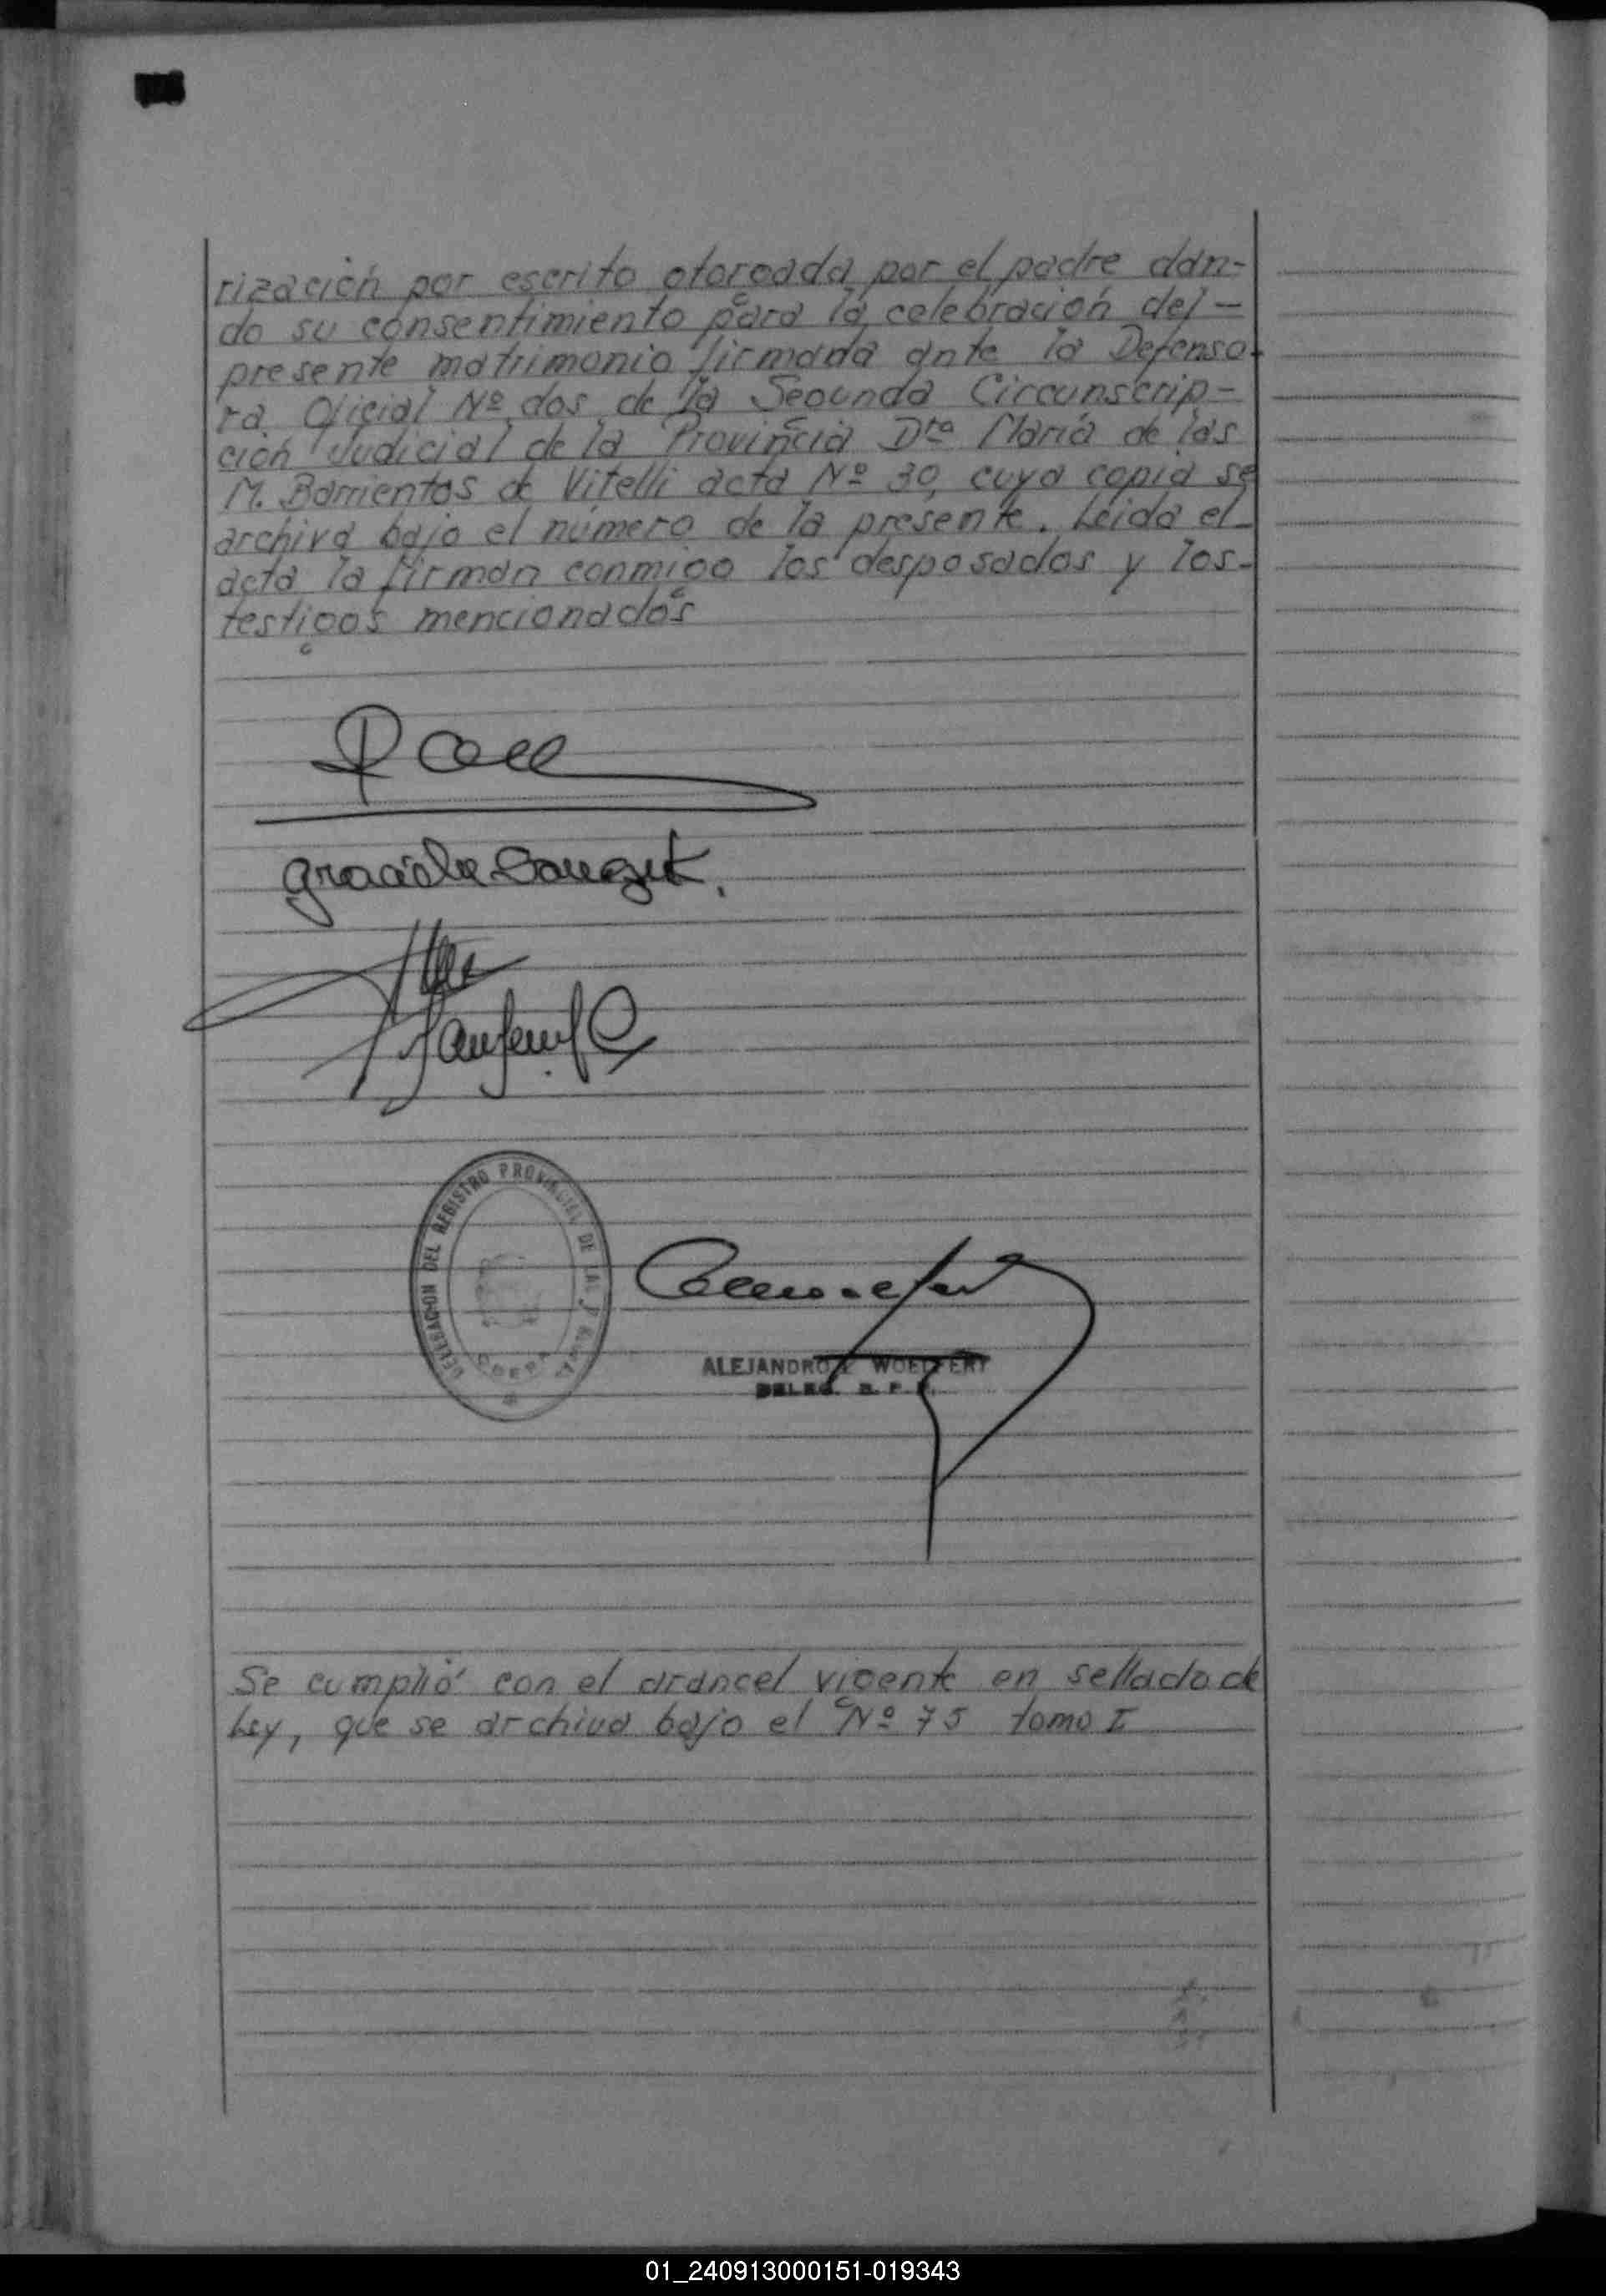 rización por escrito otorgada por el padre dan-
do su consentimiento para la celebración del -
presente matrimonio firmada ante la Defenso-
ra Oficial Nº dos de la Segunda Circunscrip-
ción Judicial de la Provincia Dra María de las
M. Barrientos de Vitelli acta Nº 30, cuya copia se
archiva bajo el número de la presente. Leida el
acta la firman conmigo los desposados y los-
testigos mencionados
DELEGACION DEL REGISTRO PROVINCIAL DE LAS PERSONAS
OBERA
ALEJANDRO WOELFERT
DELEG. R. P. P.
Se cumplió con el arancel vigente en sellado de
Ley, que se archiva bajo el Nº 75 tomo I
01_240913000151-019343